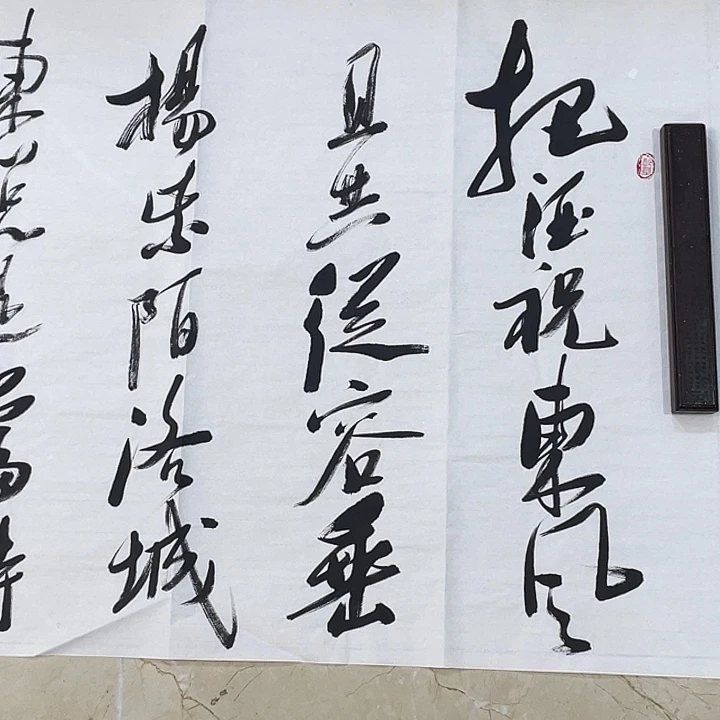 把酒祝東風
且共從容垂
楊紫陌洛城
東總是當時